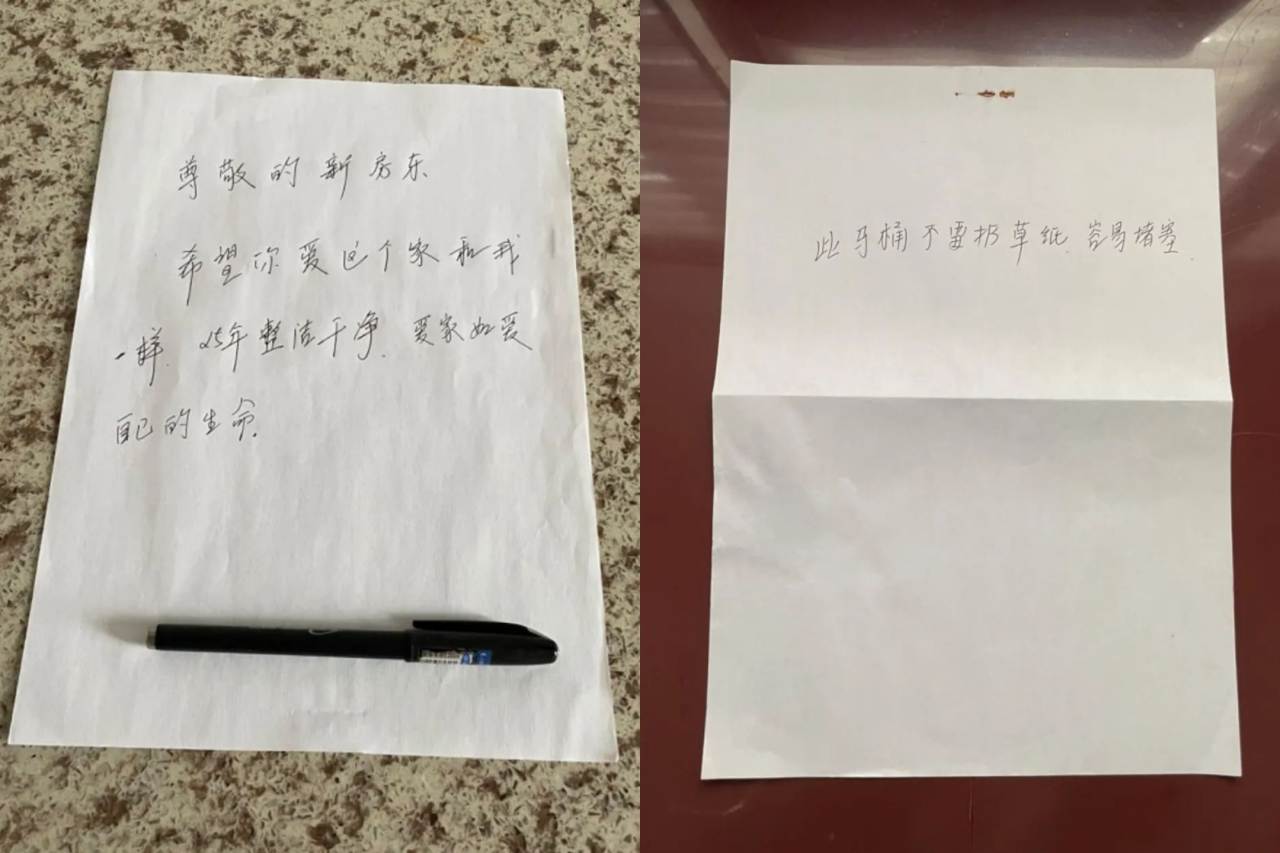 尊敬的新房东
希望你爱这个家和我
一样.25年整洁干净.爱家如爱
自己的生命.
此牙桶不要扔草纸.容易堵塞.